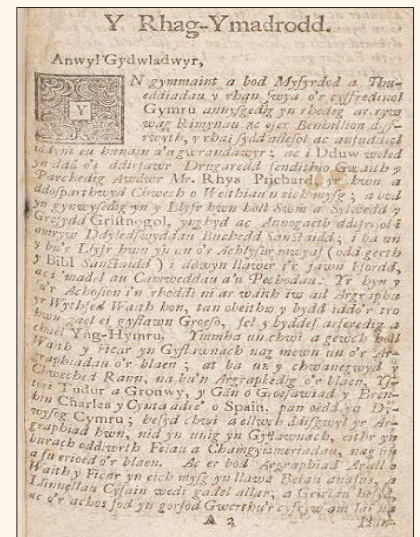 Y Rhag-Ymadrodd.
Anwyl Gydwladwyr,
YN gymmaint a bod Myfyrdod a Thu-
eddiadau y rhan fwya o'r cyffrediniol
Gymru annysgedig yn rhedeg ar ryw
wag Rimynau ac ofer Benhillion
a'n gwrandawyr; ac i Dduw weled
yn dda o'i ddirfawr Drugaredd fendithio Gwaith y
Parchedig Awdwr Mr. Rhys Prichard, yr hwn a
ddosparthwyd Chwech o Weithiau'n eich mysg; a bod
yn gynwysedig yn y Llyfr hwn holl Swm a Sylwedd y
Grefydd Gristnogol, ynghyd ac Annogaeth ddifrifol i
amryw Ddyledswyddau Buchedd Sanctaidd; i ba un
y bu'r Llyfr hwn yn un o'r Achosion mwyaf (odd gerth
y Bibl Sanctaidd) i ddwyn llawer i'r jawn Ffordd,
ac i madel au Camweddau a'n Pechodau. Yr hyn y
u'r Achosion i'n rhoddi ni ar waith iw ail Argraphu
yr Wythfed Waith hon, tan obeithio y bydd iddo'r tro
hwn gael ei gystawn Groeso, fel y byddaf arferedig a
chael Yng-Hymru. Ymmha un chwi a gewch holl
Waith y Ficar yn Gyflawnach nag mewn un o'r Ar-
graphiadau o'r blaen; at ba un y chwanegwyd y
Chweched Rann, na bu'n Argraphedig o'r blaen,
Tudur a Gronwy, y Gân o Groesawiad y Bren-
hin Charles y Cynta adre' o Spain, pan oedd ya Dy-
wysog Cymru; hefyd chwi a ellwch ddisgwyl yr Ar-
graphiad hwn, nid yn unig yn Gyflawnach, eithr yn
burach oddiwrth Feiau a Chamgymeriadau, nag un
a fu erioed o'r blaen. Ac er bod Argraphiad Arall o
Waith y Ficar yn eich mysg yn llawn Beiau anafus, a
Llinnellau Cyfain wedi gadel allan, a Geiriau hefyd,
ac o'r achos fod yn gorfod Gwerthu'r cyfryw am lai na
A 2